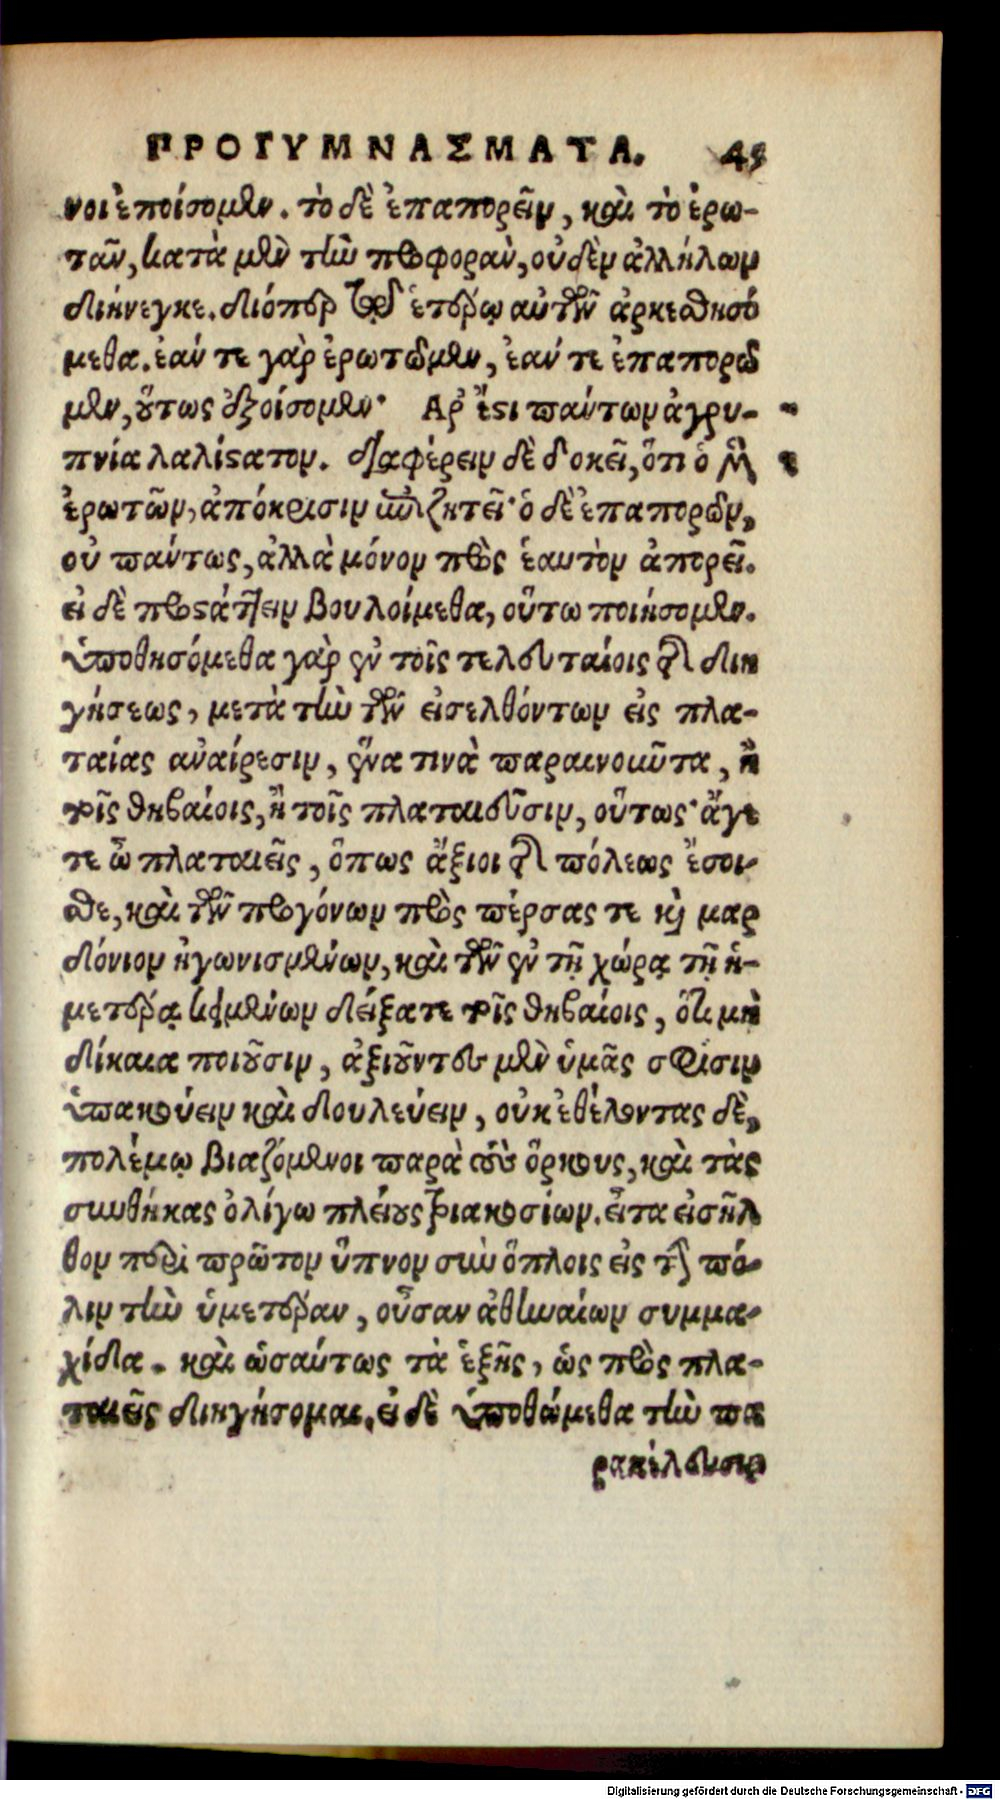 ΠΡΟΓΥΜΝΑΣΜΑΤΑ. 45
νοι ἐποίσομεν. τὸ δὲ ἐπαπορεῖν, καὶ τὸ ἐρω-
τᾶν, κατὰ μὲν τὴν προφορὰν, οὐδὲν ἀλλήλων
διήνεγκε. διόπερ τῷ ἑτέρῳ αὐτῶν ἀρκεσθησό
μεθα. ἐάν τε γὰρ ἐρωτῶμεν, ἐάν τε ἐπαπορῶ
μεν, οὕτως ἐξοίσομεν· Ἆρ' ἔστι πάντων ἀγρυ-
πνία λαλίστατον. διαφέρειν δὲ δοκεῖ, ὅτι ὁ μὲν
ἐρωτῶν, ἀπόκρισιν ἐπιζητεῖ· ὁ δὲ ἐπαπορῶν,
οὐ πάντως, ἀλλὰ μόνον πρὸς ἑαυτὸν ἀπορεῖ.
εἰ δὲ προστάττειν βουλοίμεθα, οὕτω ποιήσομεν.
ὑποθησόμεθα γὰρ ἐν τοῖς τελευταίοις τῆς διη
γήσεως, μετὰ τὴν τῶν εἰσελθόντων εἰς πλα-
ταίας ἀναίρεσιν, ἕνα τινὰ παραινοῦντα, ἢ
τοῖς θηβαίοις, ἢ τοῖς πλαταιεῦσιν, οὕτως· ἄγε
τε ὦ πλαταιεῖς, ὅπως ἄξιοι τῆς πόλεως ἔσοι-
σθε, καὶ τῶν προγόνων πρὸς πέρσας τε καὶ μαρ
δόνιον ἠγωνισμένων, καὶ τῶν ἐν τῇ χώρᾳ τῇ ἡ-
μετέρᾳ κειμένων δείξατε τοῖς θηβαίοις, ὅτι μὴ
δίκαια ποιοῦσιν, ἀξιοῦντες μὲν ὑμᾶς σφίσιν
ὑπακούειν καὶ δουλεύειν, οὐκ ἐθέλοντας δὲ,
πολέμῳ βιαζόμενοι παρὰ τοὺς ὅρκους, καὶ τὰς
συνθήκας ὀλίγω πλείους τριακοσίων. εἶτα εἰσῆλ
θον περὶ πρῶτον ὕπνον σὺν ὅπλοις εἰς τὴν πό-
λιν τὴν ὑμετέραν, οὖσαν ἀθηναίων συμμα-
χίδα. καὶ ὡσαύτως τὰ ἑξῆς, ὡς πρὸς πλα-
ταιεῖς διηγήσομαι. εἰ δὲ ὑποθώμεθα τὴν πα
ρακέλευσιν
Digitalisierung gefördert durch die Deutsche Forschungsgemeinschaft - DFG